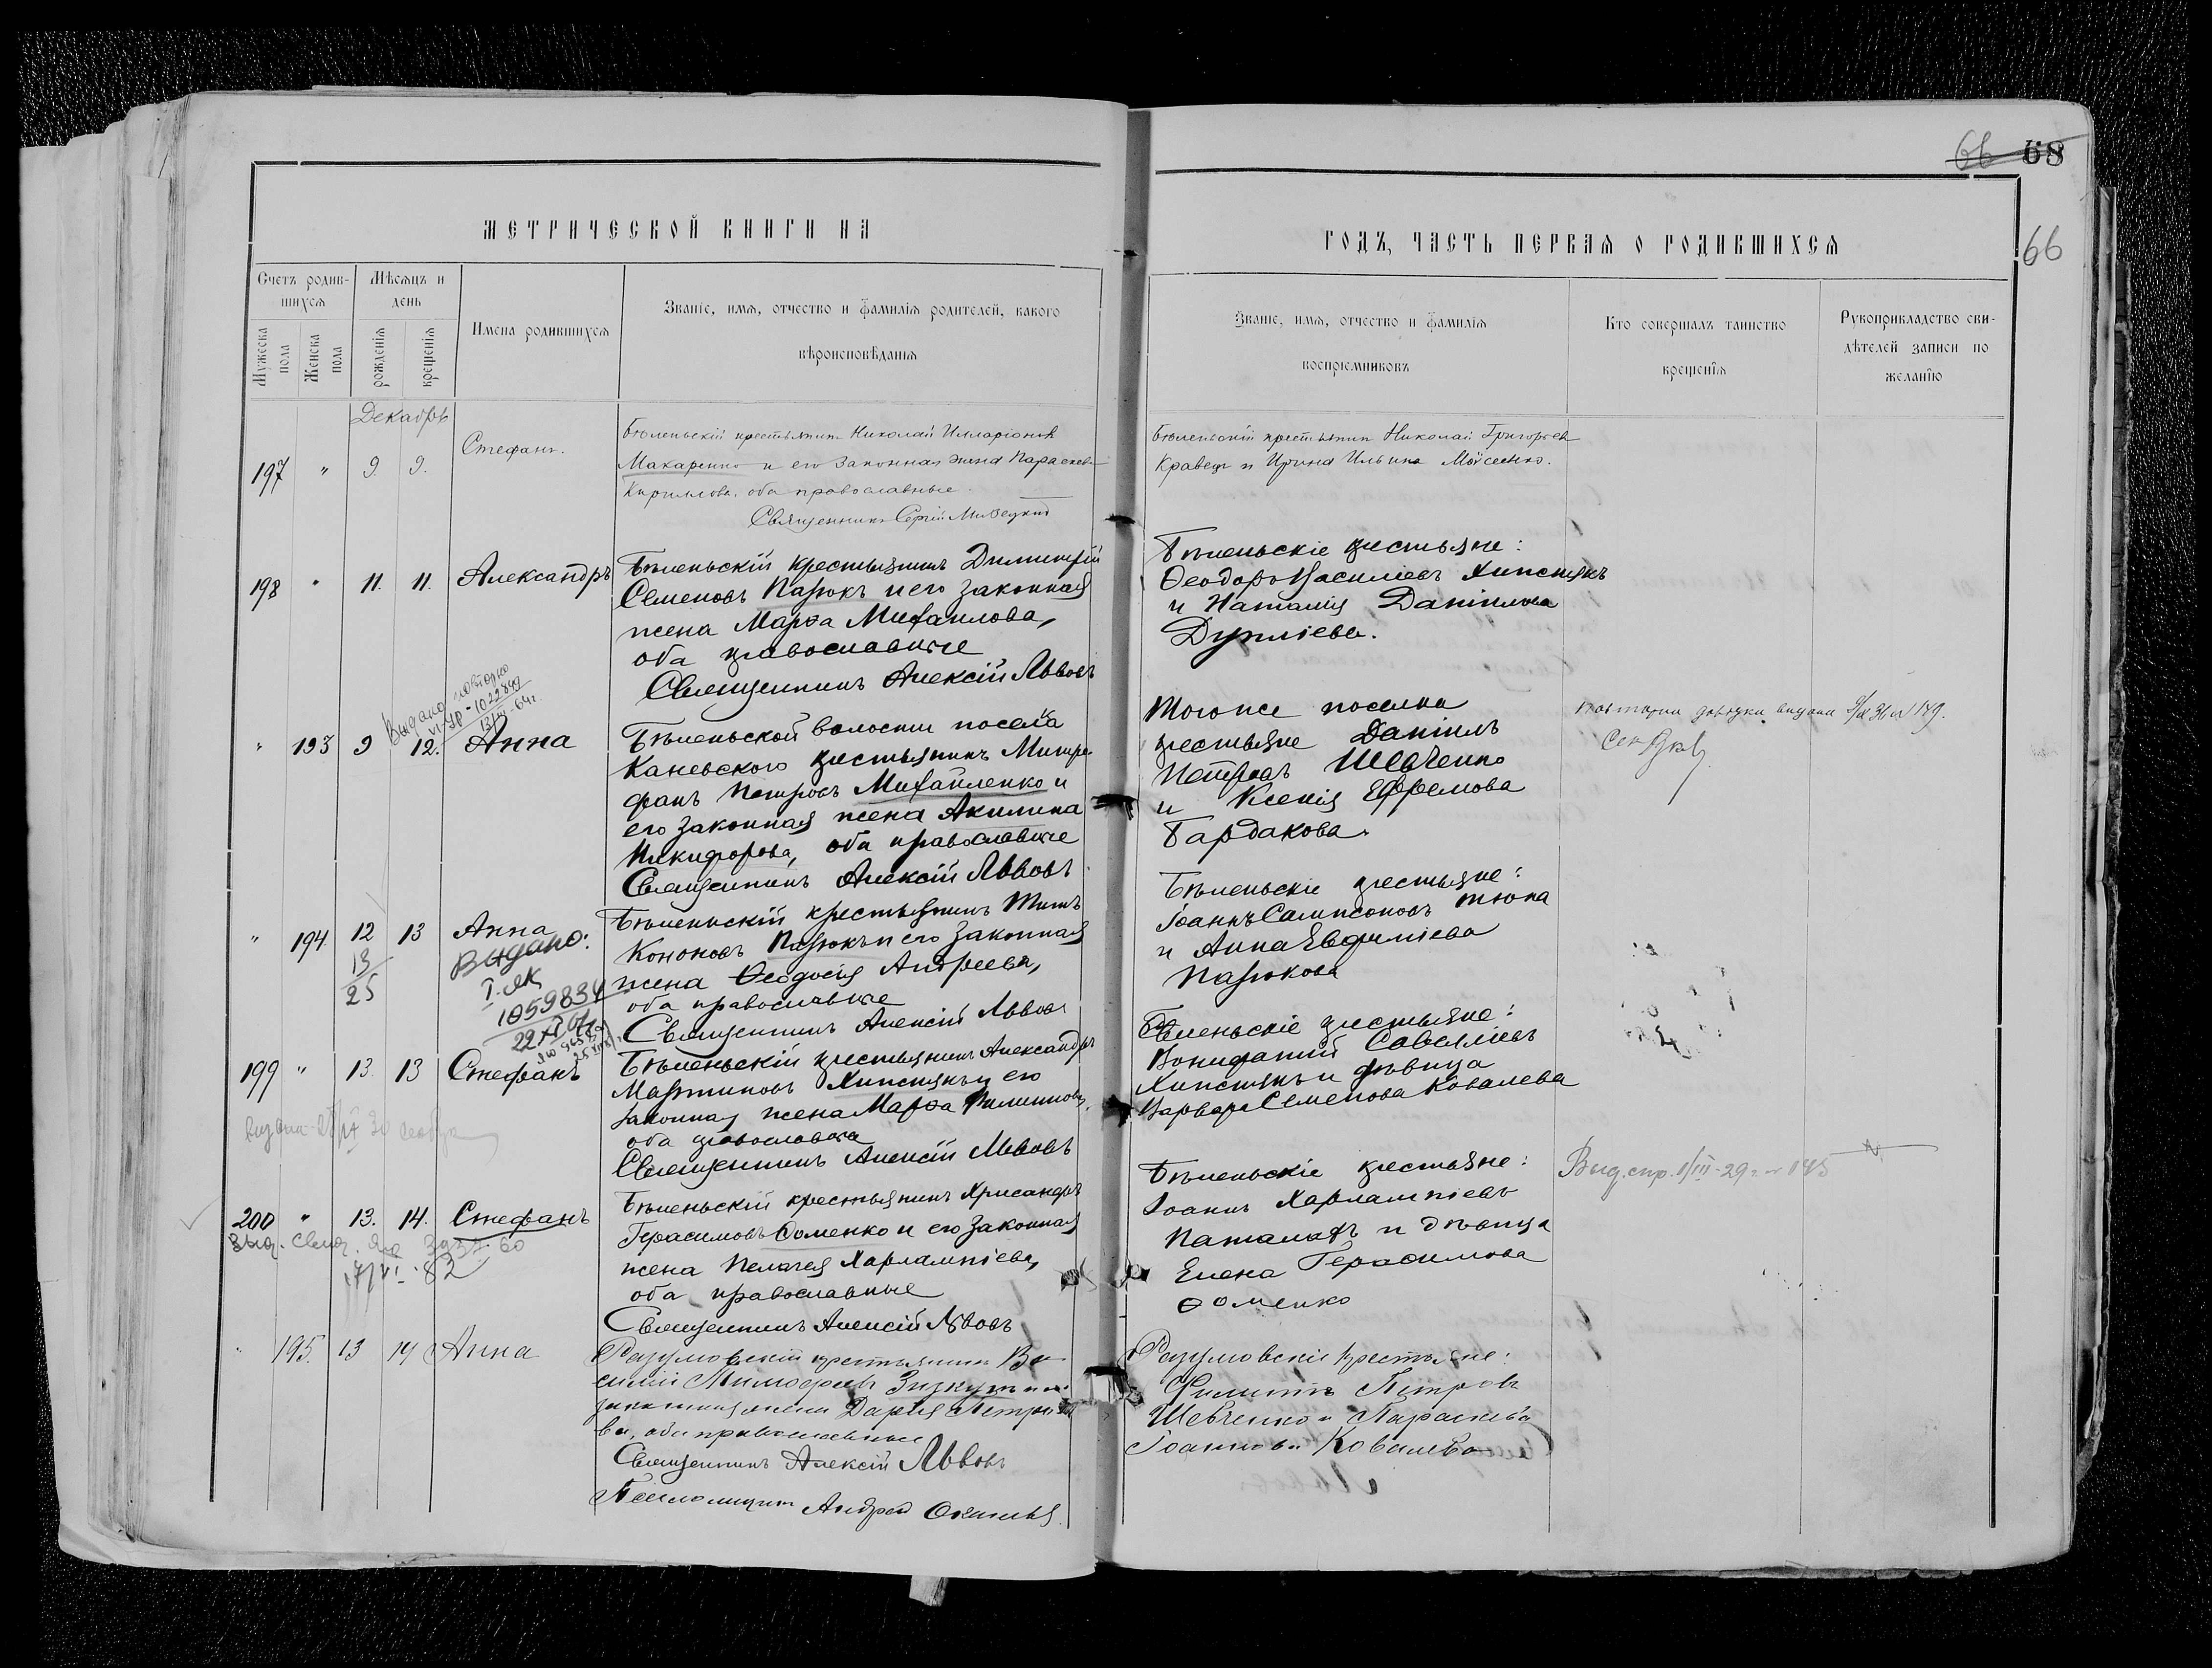 68
66
66
МЕТРИЧЕСКОЙ КНИГИ НА
ГОДЪ, ЧАСТЬ ПЕРВАЯ О РОДИВШИХСЯ
Счетъ родив-
шихся
Мужеска
пола
Женска
пола
Мѣсяцъ и
день
рожденія
крещенія
Имена родившихся
Званіе, имя, отчество и фамилія родителей, какого
вѣроисповѣданія
Званіе, имя, отчество и фамилія
воспріемниковъ
Кто совершалъ таинство
крещенія
Рукоприкладство сви-
дѣтелей записи по
желанію
Декабрь
197 " 9 9. Стефанъ.
Бѣленьскій крестьянинъ Николай Илларіоновъ
Макаренко и его законная жена Параскева
Кириллова, оба православные.
Священникъ Сергій
Бѣленьскій крестьянинъ Николай Григорьевъ
Кравецъ и Ирина Ильина Моисеенко.
198 " 11. 11. Александръ
Бѣленьскій крестьянинъ Димитрій
Семеновъ Пазюкъ и его законная
жена Марѳа Михаилова,
оба православные
Священникъ Алексій Львовъ
Бѣленьскіе крестьяне:
Ѳеодоръ Василіевъ Хипстякъ
и Наталія Даніилова
выдано повторно
1022849
" 193 9 12. Анна
Бѣленьской волости поселка
Каневского крестьянинъ Митро-
фанъ Петровъ Михайленко и
его законная жена Акилина
Никифорова, оба православные
Священникъ Алексій Львовъ
Того же поселка
крестьяне Даніилъ
Петровъ Шевченко
и Ксенія Ефремова
Бардакова.
" 194 12 13 Анна
13
25
Выдано:
1059834
Бѣленьскій крестьянинъ Титъ
Кононовъ Пазюкъ и его законная
жена Ѳеодосія Андреева,
оба православные
Священникъ Алексій Львовъ
Бѣленьскіе крестьяне:
Іоаннъ Сампсоновъ Тюпа
и Анна Евфиміева
Пазюкова
199 " 13 13 Стефанъ
Бѣленьскій крестьянинъ Александръ
Мартиновъ Хипстякъ и его
законная жена Марѳа Филиппова,
оба православные
Священникъ Алексій Львовъ
Бѣленьскіе крестьяне:
Вонифатій Савелліевъ
Хипстякъ и дѣвица
Варвара Семенова Ковалева
200 " 13. 14. Стефанъ
Бѣленьскій крестьянинъ Хрисанфъ
Герасимовъ Ѳоменко и его законная
жена Пелагея Харлампіева,
оба православные
Священникъ Алексій Львовъ
Бѣленьскіе крестьяне:
Іоаннъ Харлампіевъ
и дѣвица
Елена Герасимова
Ѳоменко
" 195. 13 14 Анна
Разумовскій крестьянинъ Ва-
силій Тимоѳеевъ
законная жена Дарія Петро-
ва, оба православные
Священникъ Алексій Львовъ
Псаломщикъ Андрей
Разумовскіе крестьяне:
Филиппъ Петровъ
Шевченко и Параскева
Іоаннова Ковалева